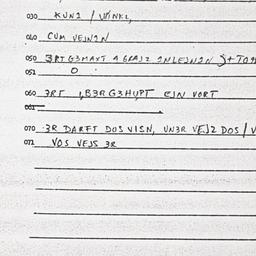 030 KUN2 / WINKL,
040 CUM VEJN2N
050 3RT G3MAXT 4 GRAJ2 2NLEJN2N
051 O
060 3RT 1,B3R G3HUPT EJN VORT
061
070 3R DARFT DOS VISN, UN3R VEJ2 DOS / V
071 VOS VEJS 3R